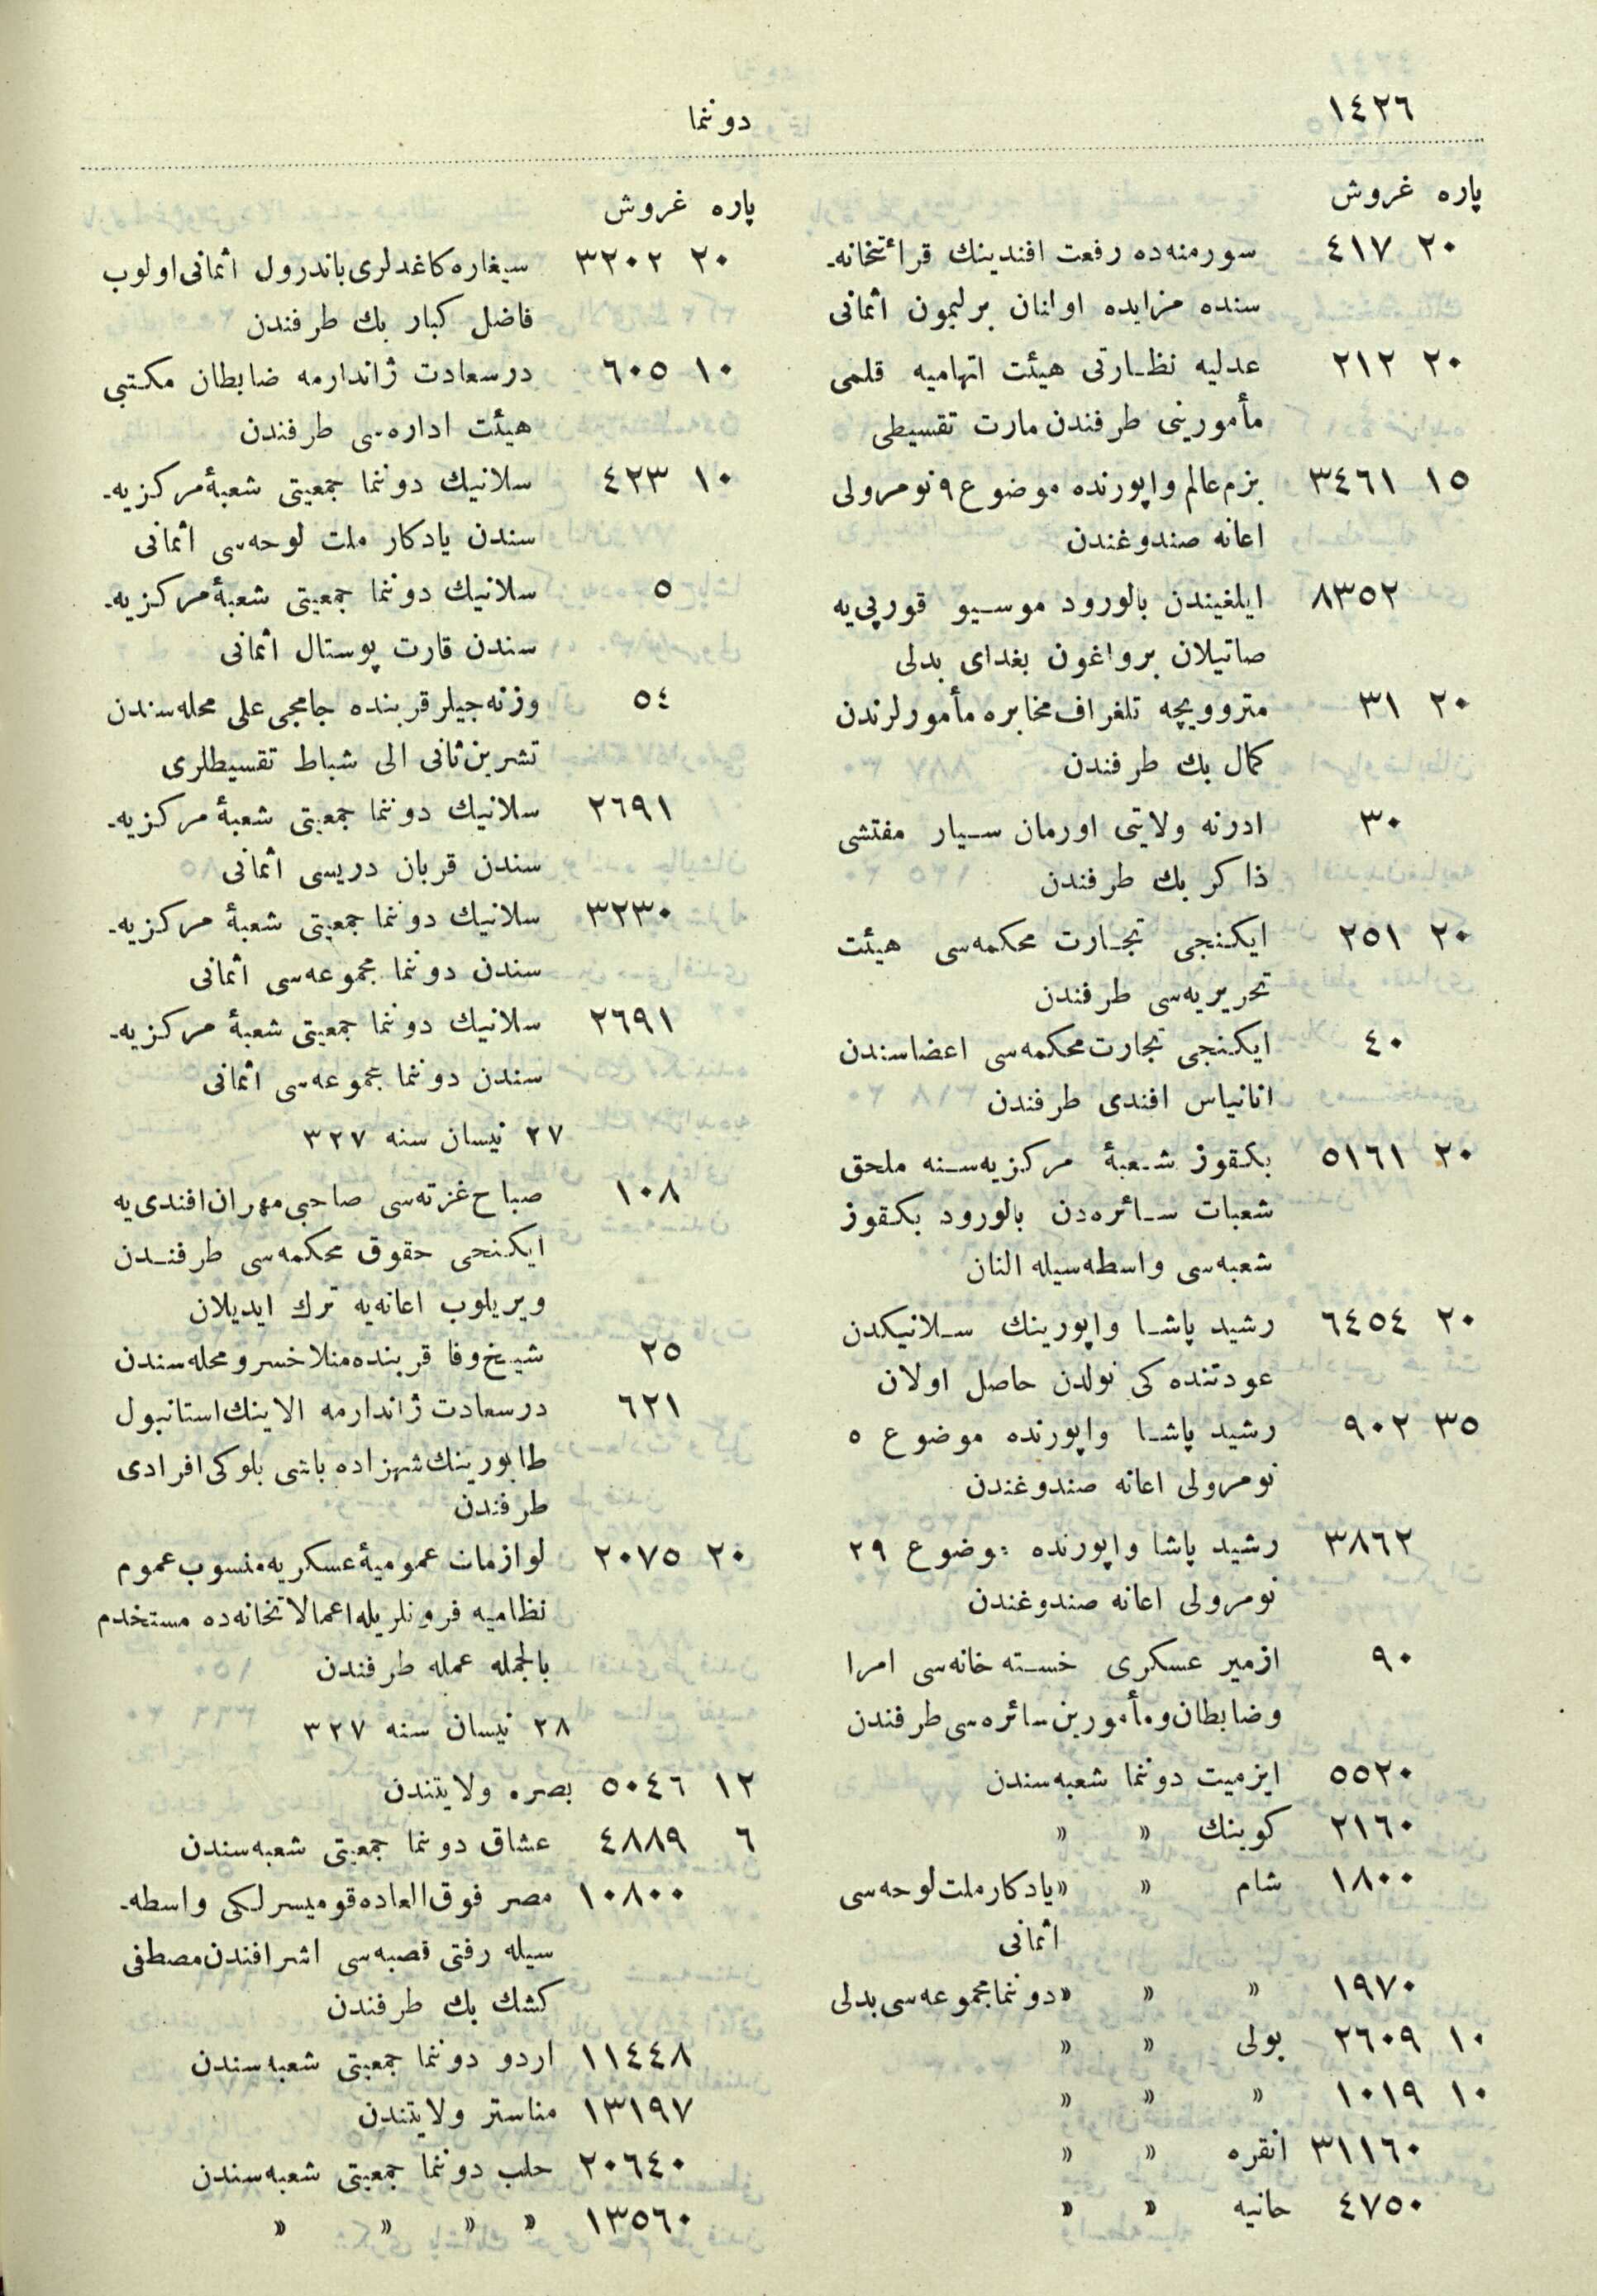 ١٤٢٦
دوننما
پاره غروش
٢٠ ٤١٧ سورمنه‌ده رفعت افندینك قرائتخانه‌ـ
سنده مزایده اولنان برلیمون اثمانی
٢٠ ٢١٢ عدلیه نظارتی هیئت اتهامیه قلمی
مأمورینی طرفندن مارت تقسیطی
١٥ ٣٤٦١ بزم عالم واپورنده موضوع ٩ نومرولی
اعانه صندوغندن
٨٣٥٢ ایلغیندن بالورود موسیو قورپی‌یه
صاتیلان برواغون بغدای بدلی
٢٠ ٣١ متروویچه تلغراف مخابره مأمورلرندن
كمال بك طرفندن
٣٠ ادرنه ولایتی اورمان سیار مفتشی
ذاكر بك طرفندن
٢٠ ٢٥١ ایكنجی تجارت محكمه‌سی هیئت
تحریریه‌سی طرفندن
٤٠ ایكنجی تجارت محكمه‌سی اعضاسندن
انانیاس افندی طرفندن
٢٠ ٥١٦١ بكقوز شعبهٔ مركزیه‌سنه ملحق
شعبات سائره‌دن بالورود بكقوز
شعبه‌سی واسطه‌سیله النان
٢٠ ٦٤٥٤ رشید پاشا واپورینك سلانیكدن
عودتنده‌كی نولدن حاصل اولان
٣٥ ٩٠٢ رشید پاشا واپورنده موضوع ٥
نومرولی اعانه صندوغندن
٣٨٦٢ رشید پاشا واپورنده موضوع ٢٩
نومرولی اعانه صندوغندن
٩٠ ازمیر عسكری خسته خانه‌سی امرا
وضابطان ومأمورین سائره‌سی طرفندن
٥٥٢٠ ایزمیت دوننما شعبه‌سندن
٢١٦٠ كوینك » »
١٨٠٠ شام » » یادكار ملت لوحه‌سی
اثمانی
١٩٧٠ » » » دوننما مجموعه‌سی بدلی
١٠ ٢٦٠٩ بولی » »
١٠ ١٠١٩ » » »
٣١١٦٠ انقره » »
٤٧٥٠ حانیه » »
پاره غروش
٢٠ ٣٢٠٢ سیغاره كاغدلری باندرول اثمانی اولوب
فاضل كبار بك طرفندن
١٠ ٦٠٥ درسعادت ژاندارمه ضابطان مكتبی
هیئت اداره‌سی طرفندن
١٠ ٤٢٣ سلانیك دوننما جمعیتی شعبهٔ مركزیه‌ـ
سندن یادكار ملت لوحه‌سی اثمانی
٥ سلانیك دوننما جمعیتی شعبهٔ مركزیه‌ـ
سندن قارت پوستال اثمانی
٥٤ وزنه جیلر قربنده جامجی علی محله‌سندن
تشرین ثانی الی شباط تقسیطلری
٢٦٩١ سلانیك دوننما جمعیتی شعبهٔ مركزیه‌ـ
سندن قربان دریسی اثمانی
٣٢٣٠ سلانیك دوننما جمعیتی شعبهٔ مركزیه‌ـ
سندن دوننما مجموعه‌سی اثمانی
٢٦٩١ سلانیك دوننما جمعیتی شعبهٔ مركزیه‌ـ
سندن دوننما مجموعه‌سی اثمانی
٢٧ نیسان سنه ٣٢٧
١٠٨ صباح غزته‌سی صاحبی مهران افندی‌یه
ایكنجی حقوق محكمه‌سی طرفندن
ویریلوب اعانه‌یه ترك ایدیلان
٢٥ شیخ وفا قربنده منلا خسرو محله‌سندن
٦٢١ درسعادت ژاندارمه الاینك استانبول
طابورینك شهزاده باشی بلوكی افرادی
طرفندن
٢٠ ٢٠٧٥ لوازمات عمومیهٔ عسكریه منسوب عموم
نظامیه فرونلریله اعمالاتخانه‌ده مستخدم
بالجمله عمله طرفندن
٢٨ نیسان سنه ٣٢٧
١٢ ٥٠٤٦ بصره ولایتندن
٦ ٤٨٨٩ عشاق دوننما جمعیتی شعبه‌سندن
١٠٨٠٠ مصر فوق العاده قومیسرلكی واسطه‌ـ
سیله رفتی قصبه‌سی اشرافندن مصطفی
كشك بك طرفندن
١١٤٤٨ اردو دوننما جمعیتی شعبه‌سندن
١٣١٩٧ مناستر ولایتندن
٢٠٦٤٠ حلب دوننما جمعیتی شعبه‌سندن
١٣٥٦٠ » » » »